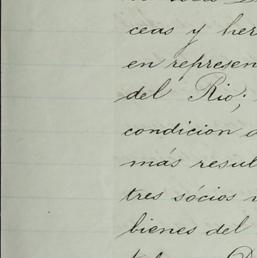 ceas y her
en represen
del Rio;
condicion d
más resul
tres sócios
bienes del